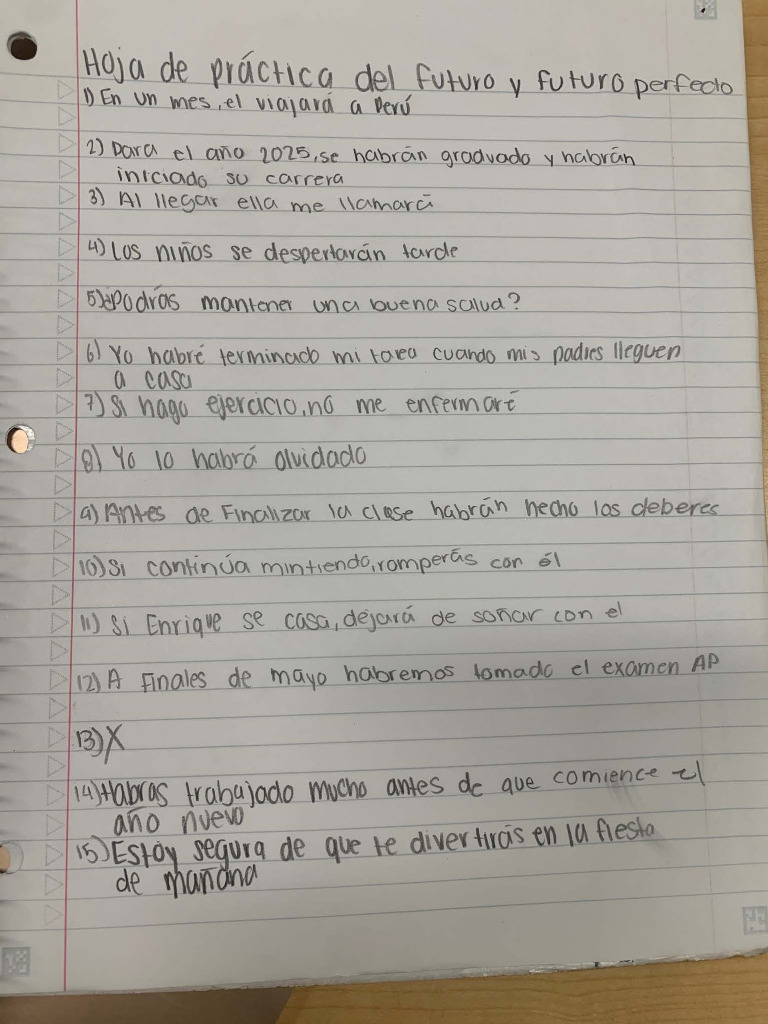 Hoja de práctica del futuro y futuro perfecto
1) En un mes, el viajará a Perú
2) Para el año 2025, se habrán graduado y habrán
iniciado su carrera
3) Al llegar ella me llamará
4) Los niños se despertarán tarde
5) ¿Podrás mantener una buena salud?
6) Yo habré terminado mi tarea cuando mis padres lleguen
a casa
7) Si hago ejercicio, no me enfermaré
8) Yo lo habrá olvidado
9) Antes de Finalizar la clase habrán hecho los deberes
10) Si continúa mintiendo, romperás con él
11) Si Enrique se casa, dejará de soñar con el
12) A Finales de mayo habremos tomado el examen AP
13) X
14) Habras trabajado mucho antes de que comience el
año nuevo
15) Estoy segura de que te divertirás en la fiesta
de mañana